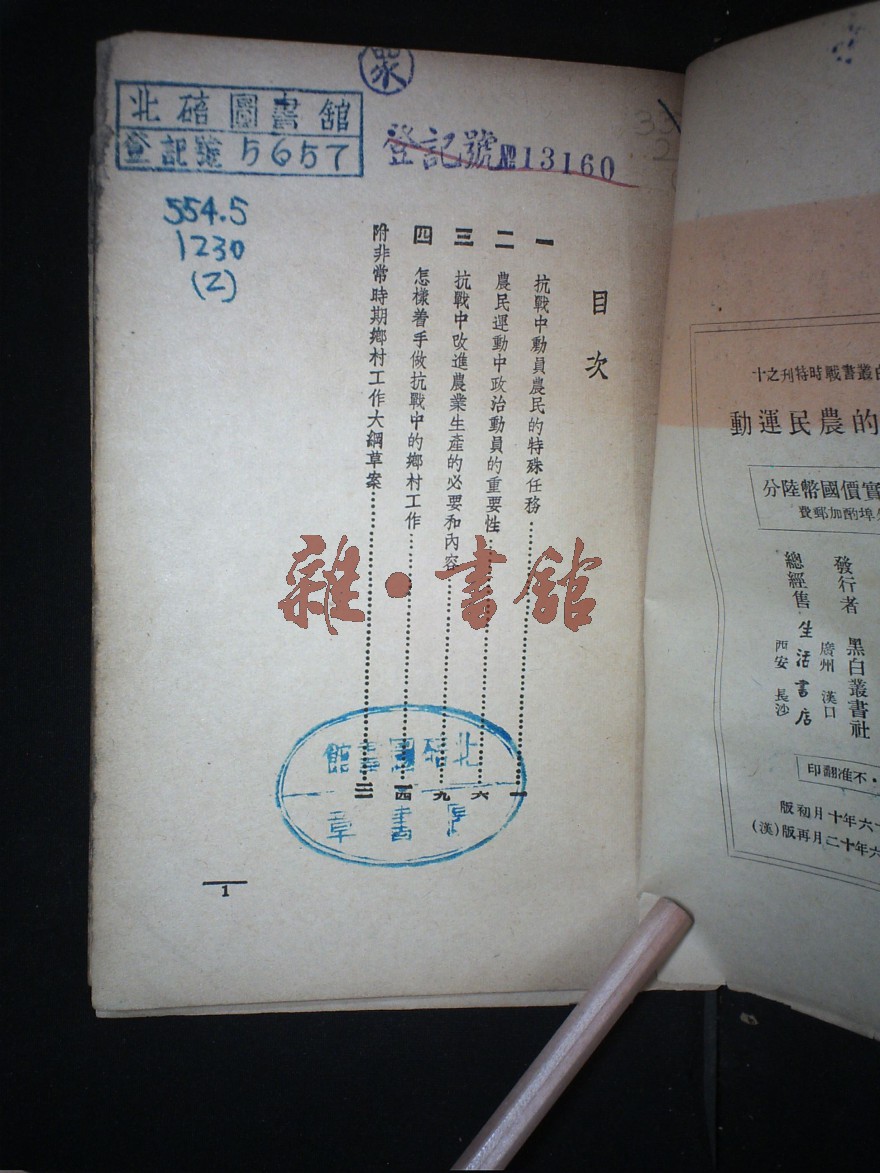 衆
北碚圖書館
登記號 5657
登記號 № 13160
554.5
1230
(2)
目次
一 抗戰中動員農民的特殊任務…………一
二 農民運動中政治動員的重要性…………六
三 抗戰中改進農業生產的必要和內容…………九
四 怎樣着手做抗戰中的鄉村工作…………一四
附非常時期鄉村工作大綱草案…………二三
雜·書館
北碚圖書館
書章
1
叢書戰時特刊之十
的農民運動
實價國幣陸分
埠酌加郵費
發行者 黑白叢書社
總經售 生活書店
廣州 漢口
西安 長沙
·不准翻印
六年十月初版
六年十二月再版(漢)